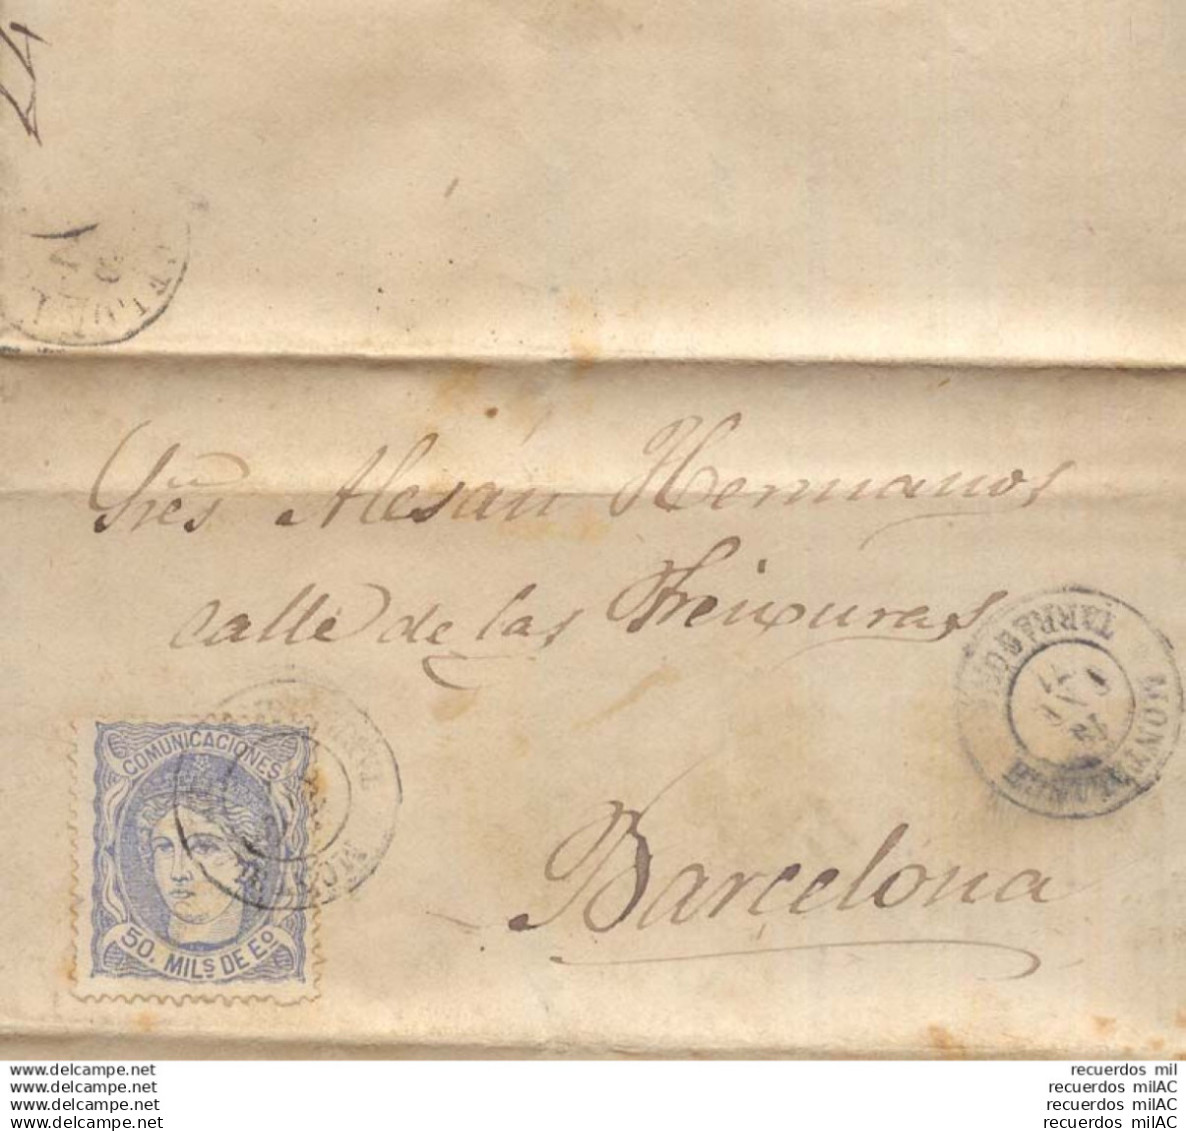 24
Sres Alesán Hermanos
calle de las Freixuras
Barcelona
COMUNICACIONES
50. MILS DE Eo
MONTBLANCH
TARRAGONA
www.delcampe.net
www.delcampe.net
www.delcampe.net
www.delcampe.net
recuerdos mil
recuerdos milAC
recuerdos milAC
recuerdos milAC